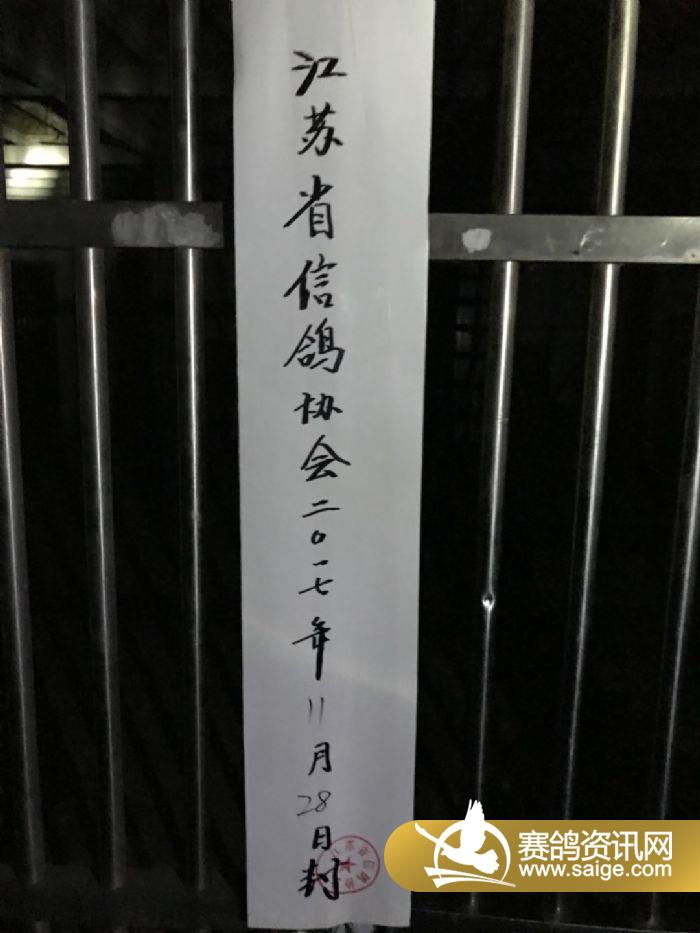 江苏省信鸽协会二〇一七年11月28日封
赛鸽资讯网
www.saige.com